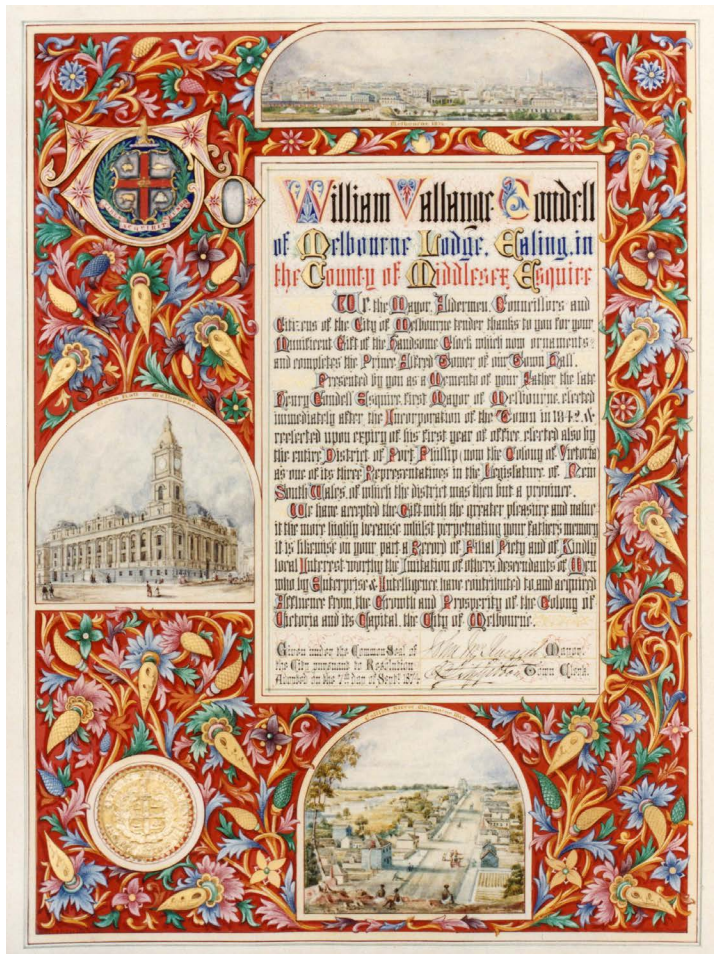 Melbourne 1874
William Vallange Condell
of Melbourne Lodge, Ealing, in
the County of Middlesex Esquire
We the Mayor, Aldermen, Councillors and
Citizens of the City of Melbourne tender thanks to you for your
Munificent Gift of the Handsome Clock which now ornaments
and completes the Prince Alfred Tower of our Town Hall.
Presented by you as a Memento of your Father the late
Henry Condell Esquire first Mayor of Melbourne elected
immediately after the Incorporation of the Town in 1842 &
reelected upon expiry of his first year of office elected also by
the entire District of Port Phillip now the Colony of Victoria
as one of its three Representatives in the Legislature of New
South Wales, of which the district was then but a province.
We have accepted the Gift with the greater pleasure and value
it the more highly because whilst perpetuating your father's memory
it is likewise on your part a Record of Filial Piety and of Kindly
local Interest worthy the Imitation of others descendants of Men
who by Enterprise & Intelligence have contributed to and acquired
Affluence from the Growth and Prosperity of the Colony of
Victoria and its Capital, the City of Melbourne.
Given under the Common Seal of
the City pursuant to Resolution
Adopted on the 7th Day of Septr. 1874
Mayor.
Town Clerk.
Town Hall - Melbourne
Collins Street Melbourne